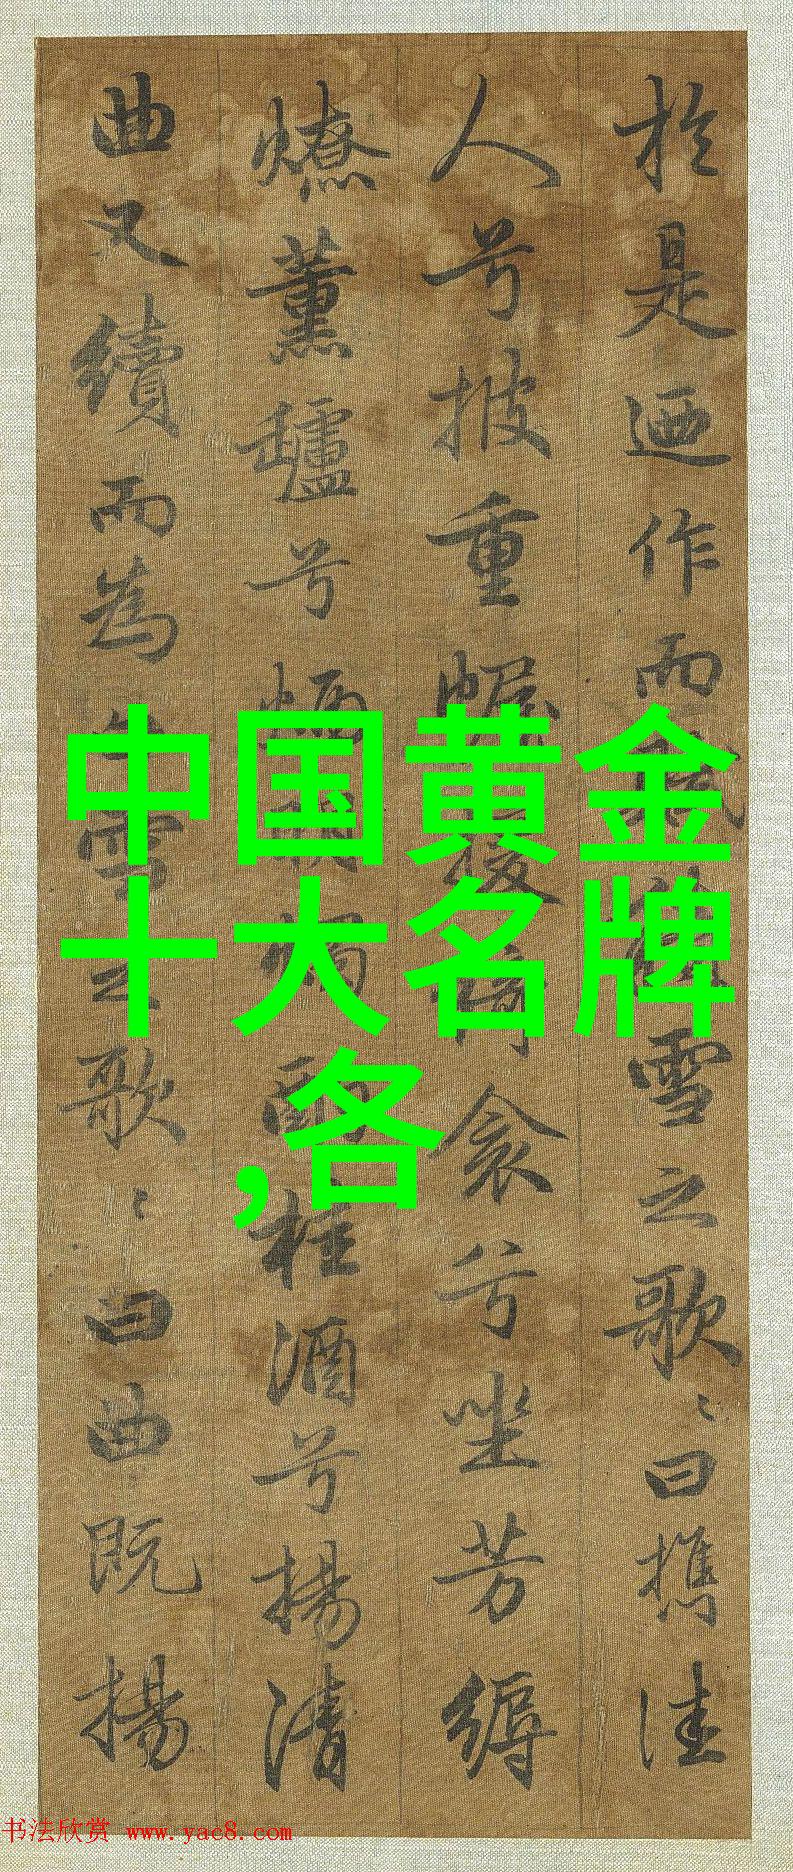 於是迺作而賦積雪之歌〻曰携佳
人兮披重幄援綺衾兮坐芳縟
燎薰罏兮炳明燭酌桂酒兮揚清
曲又續而為白雪之歌〻曰曲既揚
中国黄金
十大名牌
,各
书法欣赏 www.yac8.com